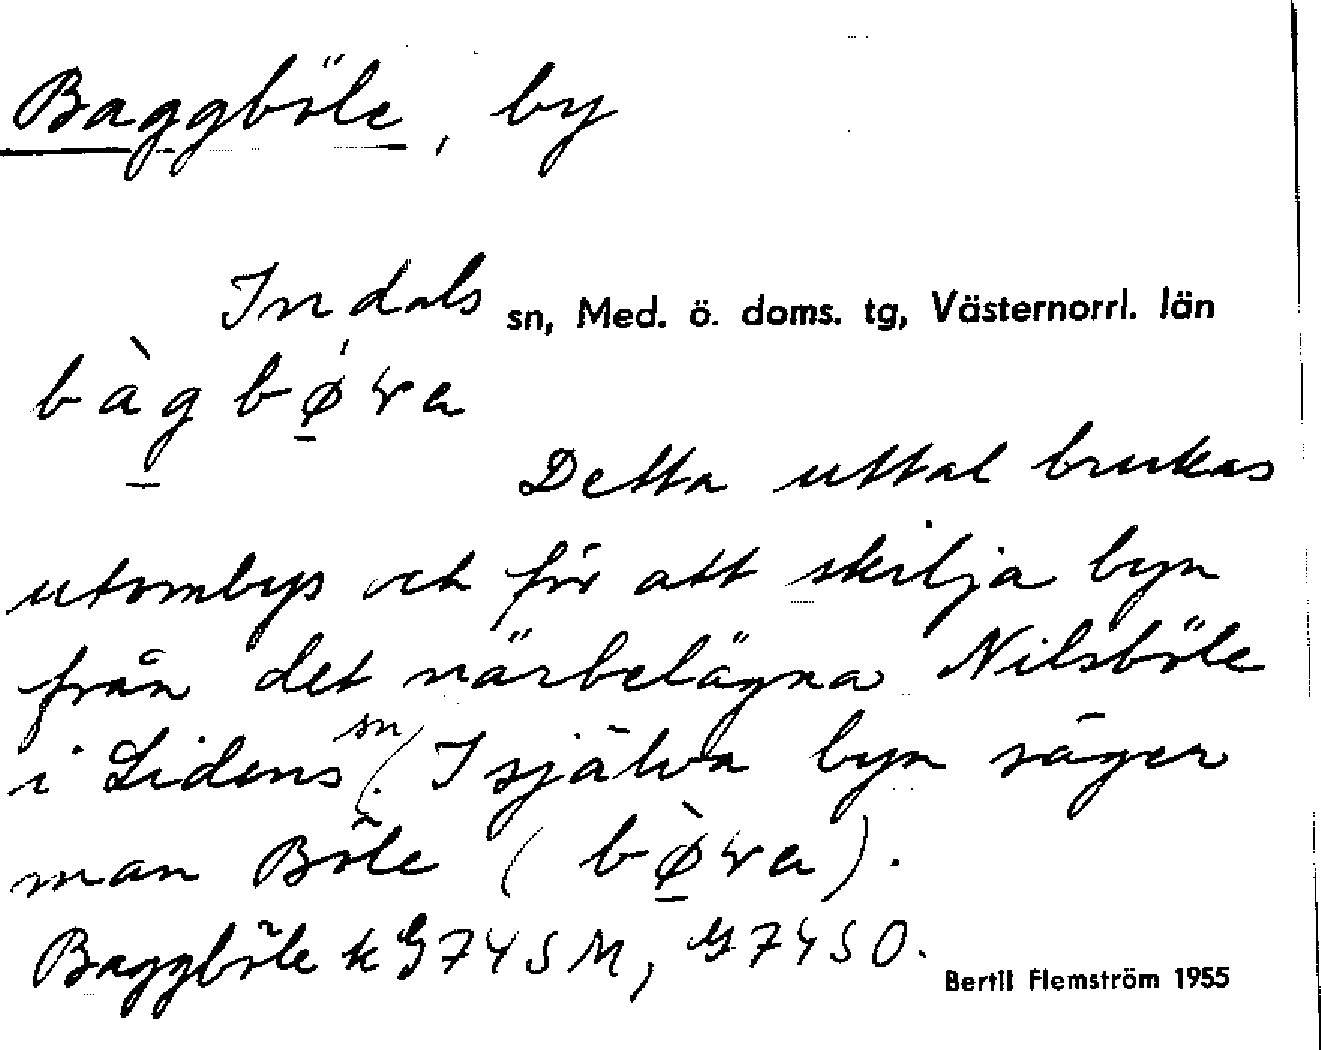 Baggböle, by
Indals sn, Med. ö. doms. tg, Västernorrl. län
bàg bø̀ɽa
Detta uttal brukas
utombys och för att skilja byn
från det närbelägna Nilsböle
i Lidens sn. I själva byn säger
man Böle (bø̀ɽa).
Baggböle k G74SM, G74SO.
Bertil Flemström 1955